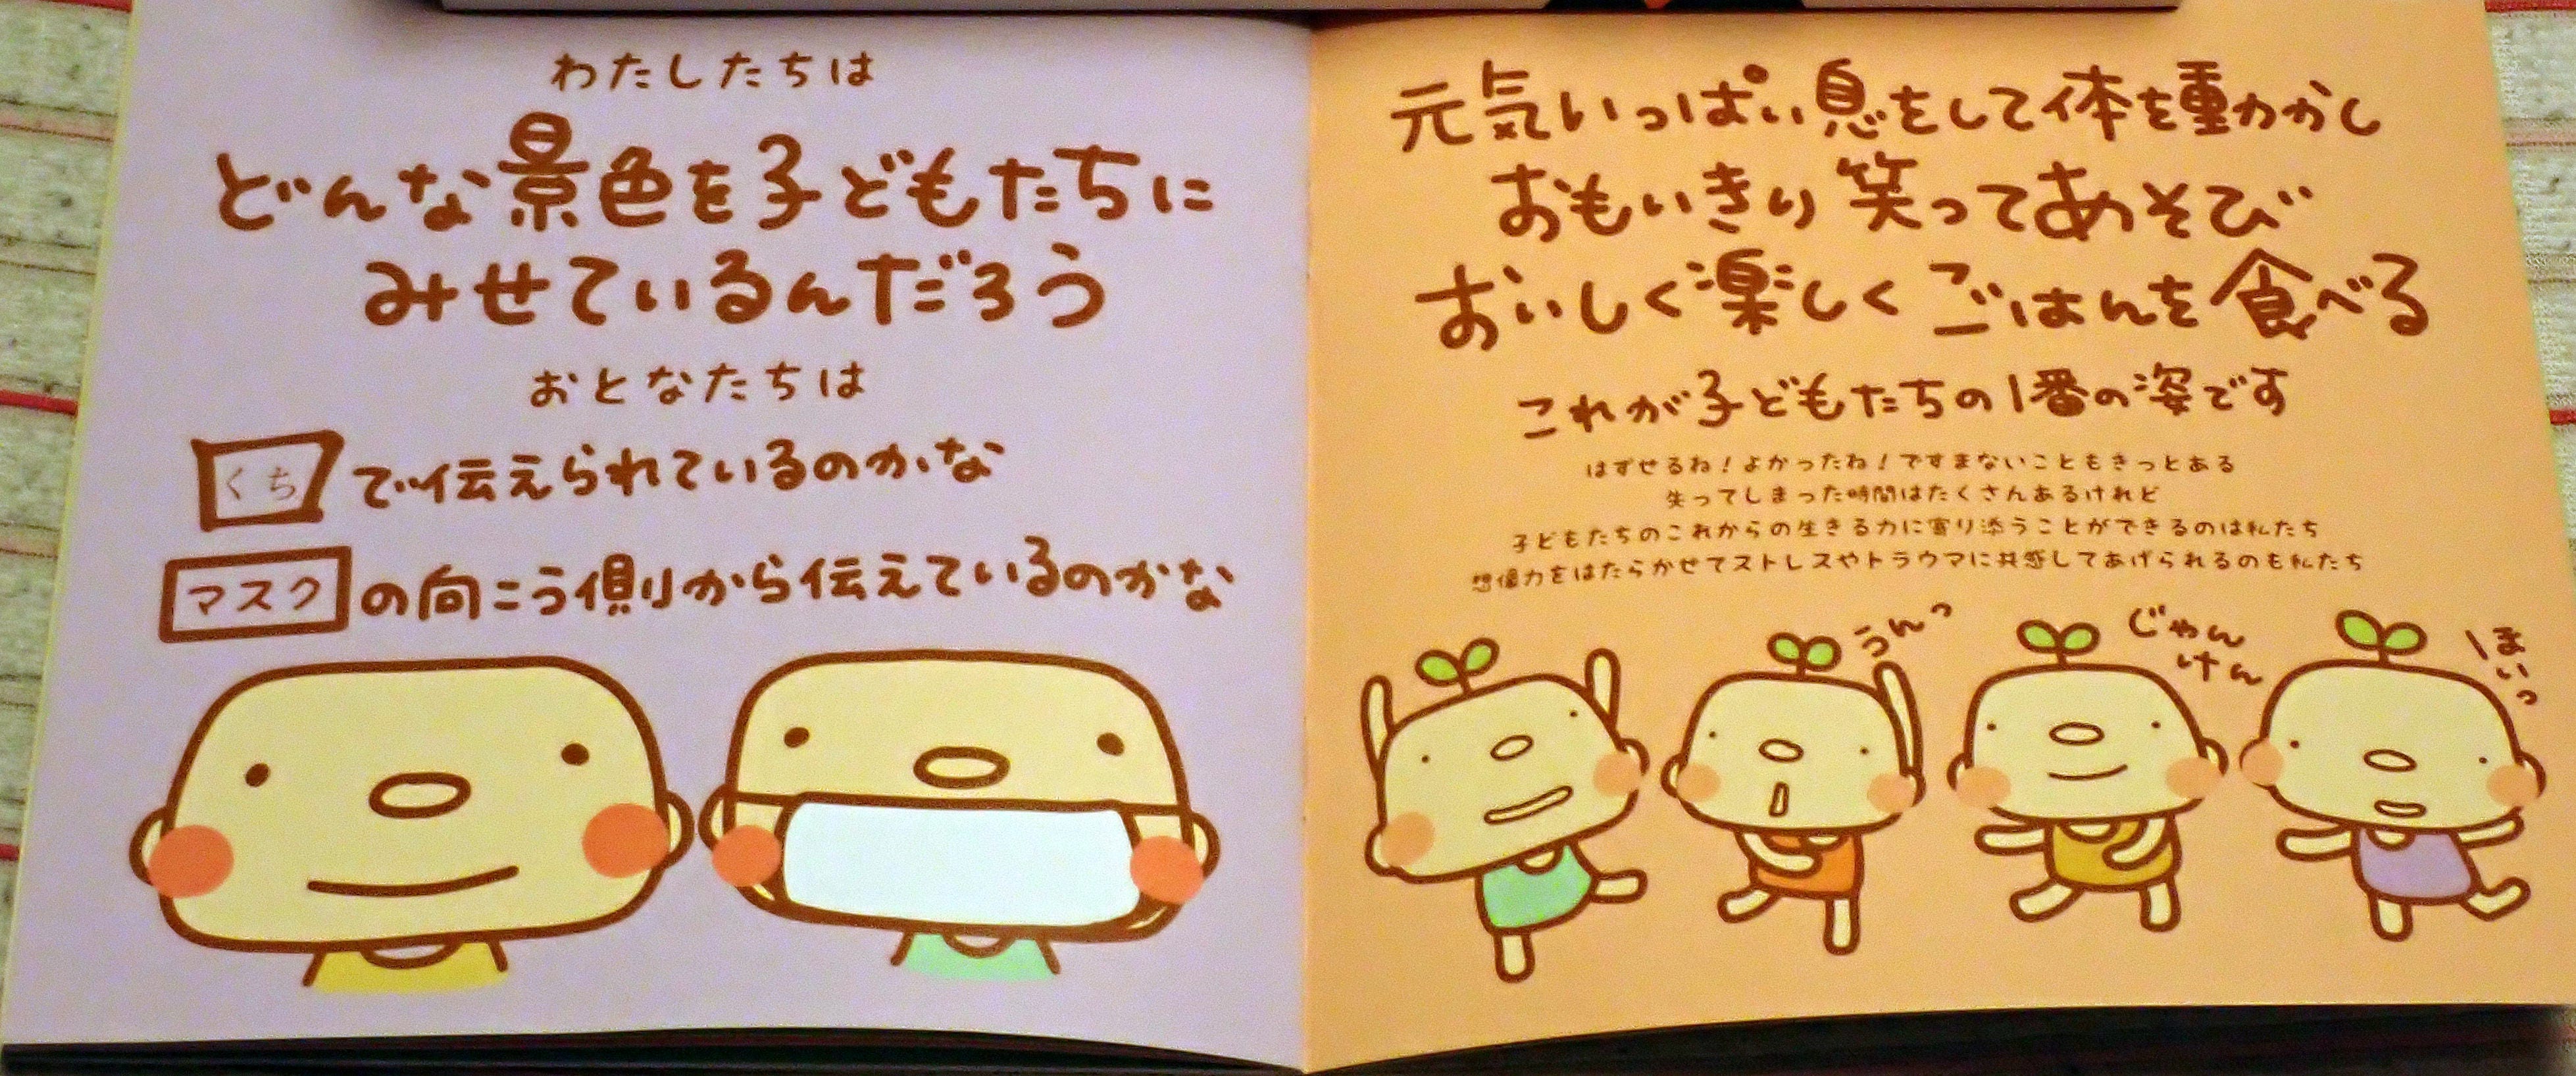 わたしたちは
どんな景色を子どもたちに
みせているんだろう
おとなたちは
くち で伝えられているのかな
マスク の向こう側から伝えているのかな
元気いっぱい息をして体を動かし
おもいきり笑ってあそび
おいしく楽しくごはんを食べる
これが子どもたちの1番の姿です
はずせるね!よかったね!ですまないこともきっとある
失ってしまった時間はたくさんあるけれど
子どもたちのこれからの生きる力に寄り添うことができるのは私たち
想像力をはたらかせてストレスやトラウマに共感してあげられるのも私たち
うんっ
じゃん
けん
ほいっ